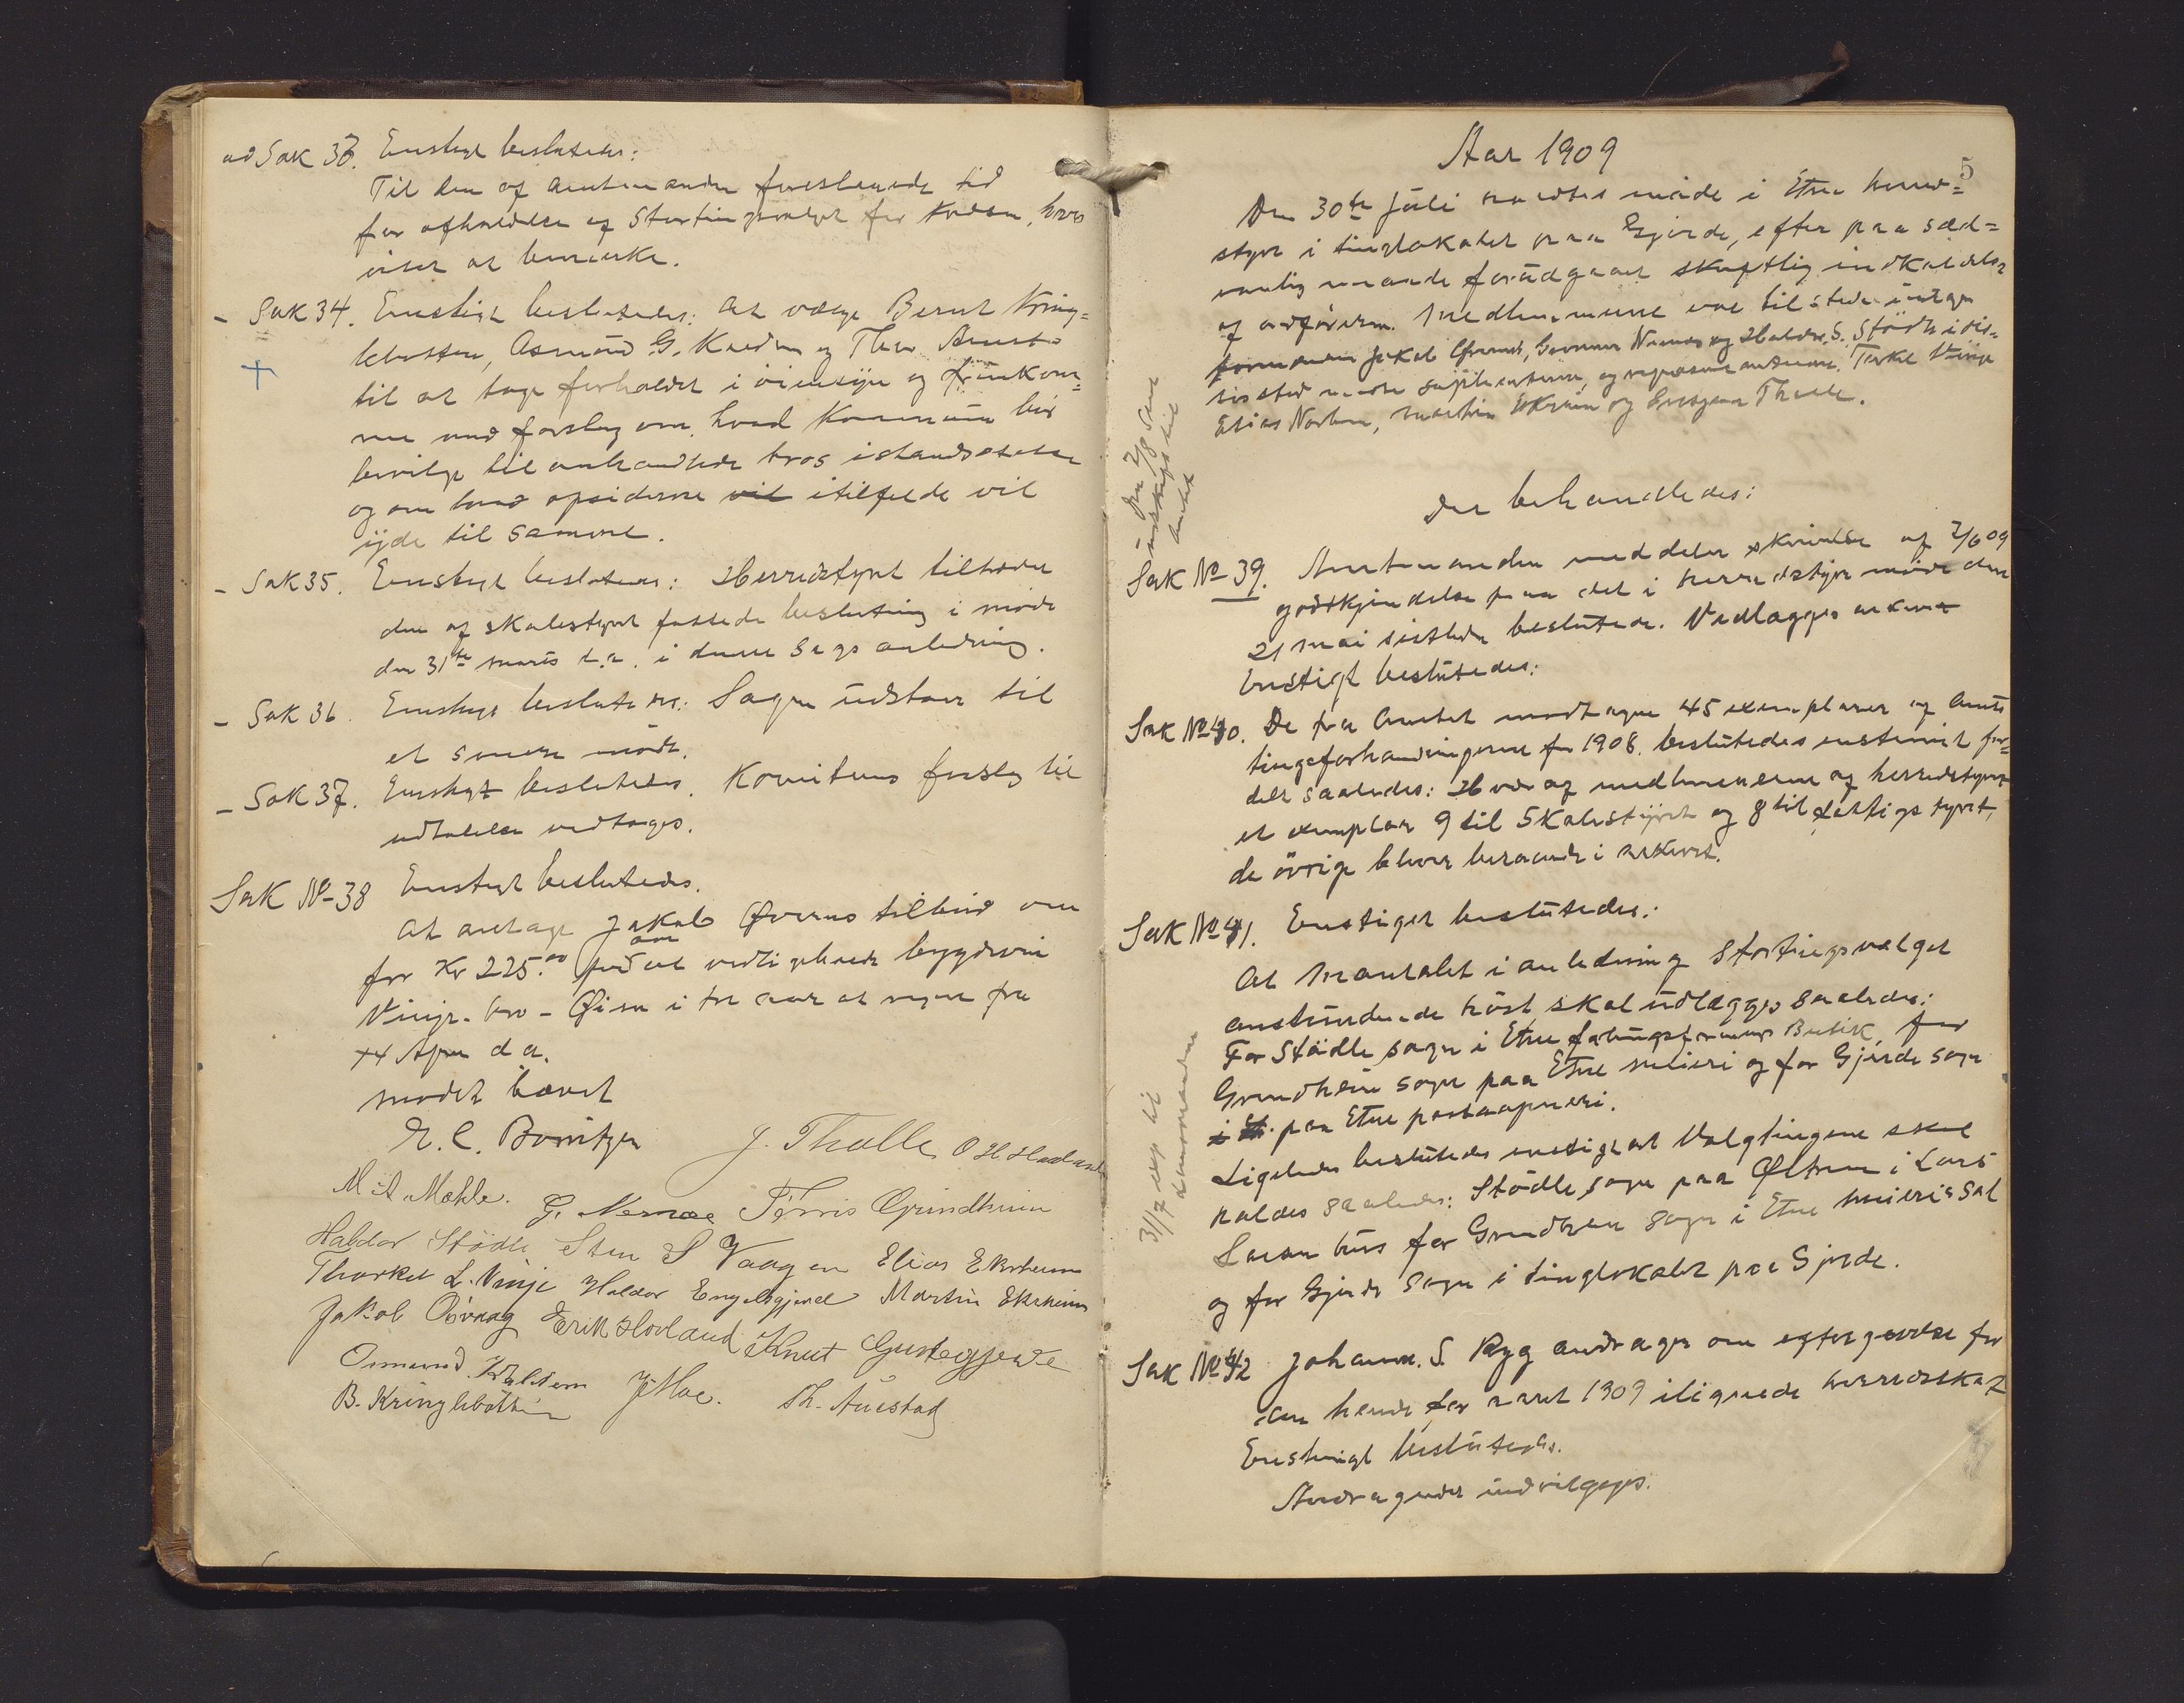 ad Sak 33. Enstigt beslutedes:
Til den af amtmanden foreslaaede tid
for afholdelse af Stortingsvalget for Kredsen, haves
intet at bemærke.
- Sak 34. Enstigt beslutedes: At vælge Bernt Kring=
lebotten, Asmund G. Kaldem og Thor Austa
til at tage forholdet i øiensyn og fremkom=
me med forslag om, hvad Kommunen bør
bevilge til omhandlede bros istandsættelse
og om hvad opsiderne vil itilfelde vil
yde til samme.
- Sak 35. Enstigt beslutedes: Herredstyret tiltræder
den af skolestyret fattede beslutning i møde
den 31te marts d.a. i denne sags anledning.
- Sak 36. Enstigt beslutedes: Sagen udstaar til
et senere møde.
- Sak 37. Enstigt beslutedes. Komiteens forslag til
udtalelse vedtages.
Sak No 38 Enstigt beslutedes.
At antage Jakob Øvernes tilbud om
for Kr 225.00 pr aar at vedligeholde bygdevei
Vinje-bro - Øien i tre aar at regne fra
14 April d.a.
mødet hævet
E. C. Bornitzen J. Thalle O H Haaland
M A Mæhle. G. Nernæs Tørris Grindheim
Haldor Stødle Sten S Vaagen Elias Ekrheim
Thorkel L. Vinje Haldor Engelsgjerd Martin Ekrheim
Jakob Øivaag Erik Hovland Knut Gusteggjerde
Osmund Kaldem J Moe. Th. Austad
B. Kringlebotten
5
Aar 1909
Den 30te Juli holdtes møde i Etne herred=
styre i tinglokalet paa Gjerde, efter paa sæd=
vanlig maade forudgaaet skriftlig indkaldelse
af ordføreren. Medlemmerne var tilstede undtagen
formanden Jakob Øvernes, Gunnar Nernæs og Haldor S. Stødle i dis=
ses sted mødte suppleanterne, og repræsentanterne Torkel Vinje
Elias Nordem, Martin Ekrheim og Thalle.
Der behandledes:
Sak No 39. Amtmanden meddeler skrivelse af 2/6 09
godkjendelse paa det i herredstyre møde den
21 mai sistleden beslutede. Vedlægges arkivet
Enstigt beslutedes:
Sak No 40. De fra Amtet modtagne 45 exemplarer af Amts
tingsforhandlingerne for 1908. beslutedes enstemmig for=
delt saaledes: Hver af medlemmerne af herredstyret
et exemplar 9 til Skolestyret og 8 til fattigstyret,
de øvrige bliver beroende i arkivet.
Sak No 41. Enstiget beslutedes:
At Mantalet i anledning Stortingsvalget
anstundende høst, skal udlægges saaledes:
For Stødle sogn i Etne Butik, for
Grindheim sogn paa Etne meieri og for Gjerde sogn
i Et. paa Etne postaapneri.
Ligeledes beslutedes enstigt at Valgtingene skal
holdes saaledes: Stødle sogn paa Østrem i Lars
Larsen hus for Grindheim sogn i Etne meieris sal
og for Gjerde sogn i tinglokalet paa Gjerde.
Sak No 42 Johanne S. Ryg andrager om eftergivelse for
den hende for aaret 1909 ilignede herredsskat
Enstemigt beslutedes.
Andragendet indvilgeges.
31/7 exp til
Lensmanden